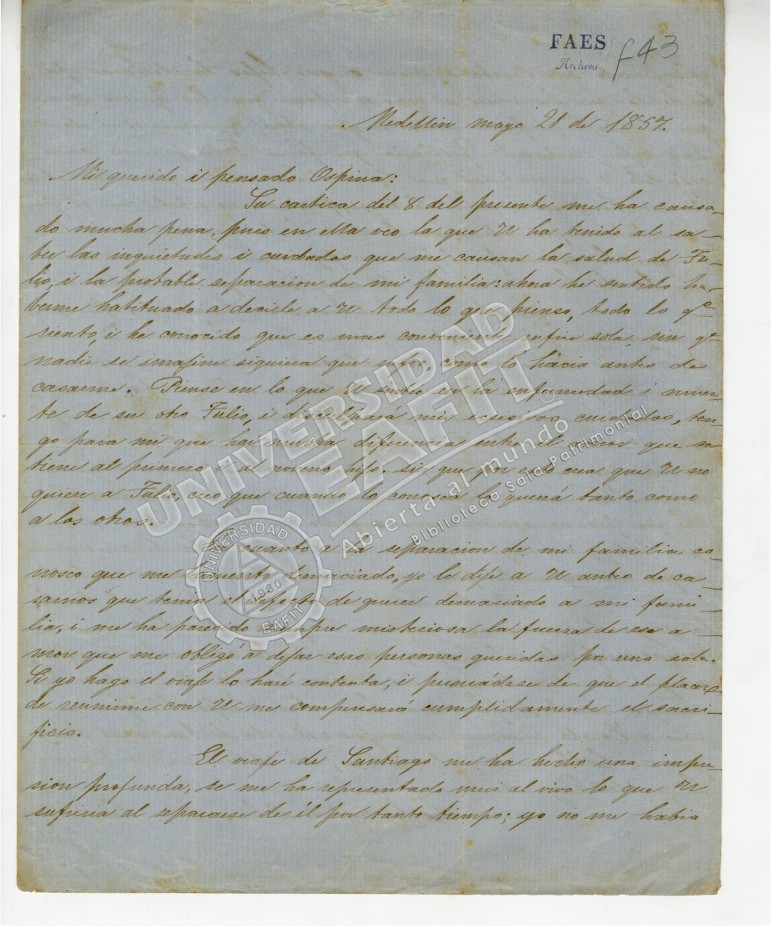 FAES
Archivo
f 43
Medellin mayo 21 de 1857.
Mi querido i pensado Ospina:
Su cartica del 8 del presente me ha causa-
do mucha pena, pues en ella veo la que U ha tenido al sa-
ber las inquietudes i cuidados que me causan la salud de Tu-
lio, i la probable separacion de mi familia: ahora he sentido ha-
berme habituado a decirle a U todo lo que pienso, todo lo qe
siento, i he conocido que es mas sufrir sola, sin qe
nadie se imajine siquiera que sufro, como lo hacia antes de
casarme. Piense en lo que U sintió en la enfermedad i muer-
te de su otro Tulio, i disculpará mis cuidados, ten-
go para mi que hai mucha diferencia entre el amor que se
tiene al primero i al noveno hijo, sin que por esto crea que U no
quiere a Tulio, creo que cuando lo conosca lo querrá tanto como
a los otros.
En cuanto a la separacion de mi familia co-
nosco que me he denunciado, yo le dije a U antes de ca-
sarnos que tenia el defecto de querer demasiado a mi fami-
lia, i me ha parecido siempre misteriosa la fuerza de ese a-
mor que me obligó a dejar esas personas queridas por una sola.
Si yo hago el viaje lo haré contenta, i persuádase de que el placer
de reunirme con U me compensará cumplidamente el sacri-
ficio.
El viaje de Santiago me ha hecho una impre-
sion profunda, se me ha representado mui al vivo lo que U
sufriria al separarse de él por tanto tiempo; yo no me habia
UNIVERSIDAD
EAFIT
Abierta al mundo
Biblioteca Sala Patrimonial
UNIVERSIDAD
1960
EAFIT